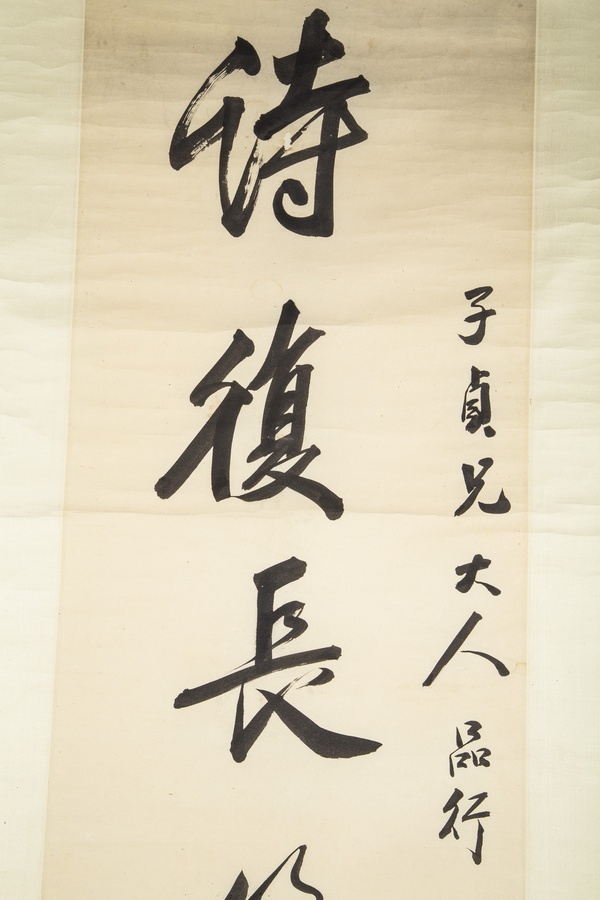 子貞兄大人品行
待復長